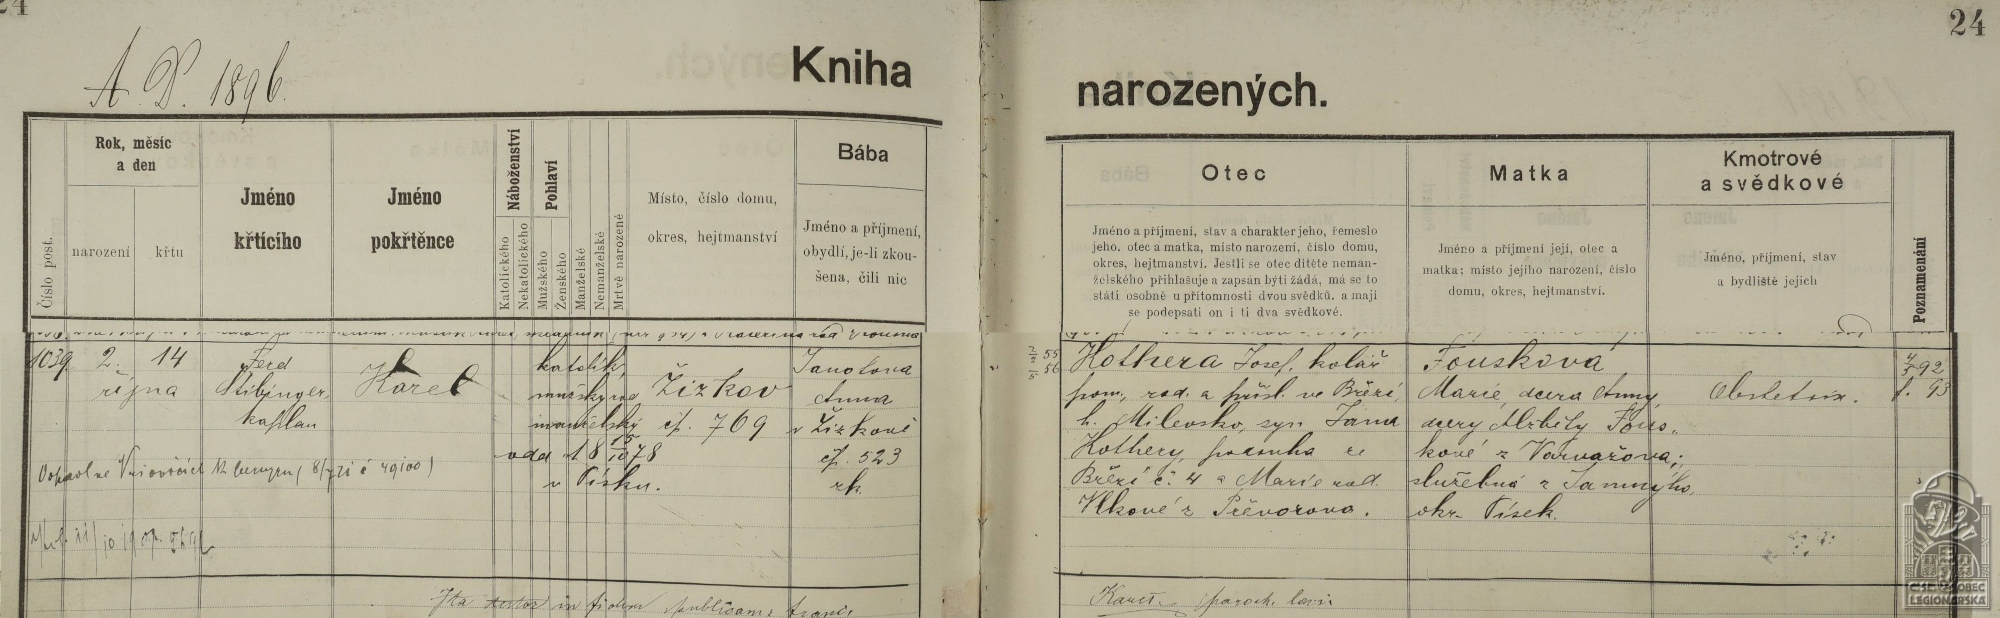 24
24
A. D. 1896.
Kniha
narozených.
Rok, měsíc
a den
narození
křtu
Číslo post.
Jméno
křtícího
Jméno
pokřtěnce
Náboženství
Katolického
Nekatolického
Pohlaví
Mužského
Ženského
Manželské
Nemanželské
Mrtvě narozené
Místo, číslo domu,
okres, hejtmanství
Bába
Jméno a příjmení,
obydlí, je-li zkou-
šena, čili nic
Otec
Jméno a příjmení, stav a charakter jeho, řemeslo
jeho, otec a matka, místo narození, číslo domu,
okres, hejtmanství. Jestli se otec dítěte neman-
želského přihlašuje a zapsán býti žádá, má se to
státi osobně u přítomnosti dvou svědků, a mají
se podepsati on i ti dva svědkové.
Matka
Jméno a příjmení její, otec a
matka; místo jejího narození, číslo
domu, okres, hejtmanství.
Kmotrové
a svědkové
Jméno, příjmení, stav
a bydliště jejich
Poznamenání
1039.
2.
října
14
Ferd
Stibinger,
kaplan
Karel
katolík,
mužský
manželský
odd. 18 15/10 78
v Písku.
Žižkov
čp. 769
Janotova
Anna
v Žižkově
čp. 523
zk.
55
56
Kothera Josef, kolář
pom., rod. a přísl. ve Březí,
h. Milevsko, syn Jana
Kothery, ze
Březí č. 4 a Marie rod.
Vlkové z Převorova.
Fousková
Marie, dcera Anny,
dcery Alžběty Fous-
kové z Varvažova;
služebná z
okr. Písek.
Obstetrix.
92
f. 93
Ita testor in fidem publicam:
Karel
ČSR OBEC
LEGIONÁŘSKÁ